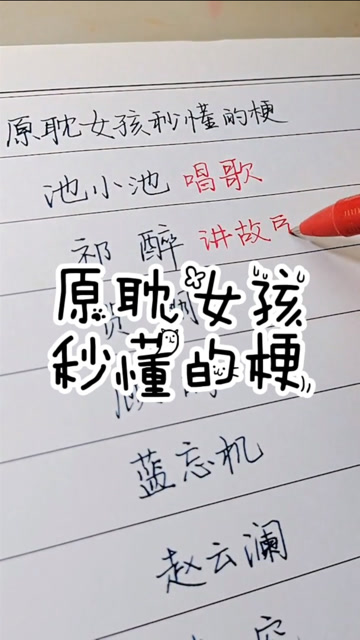 原耽女孩秒懂的梗
池小池 唱歌
祁 醉 讲故
原耽女孩
秒懂的梗
蓝忘机
赵云澜